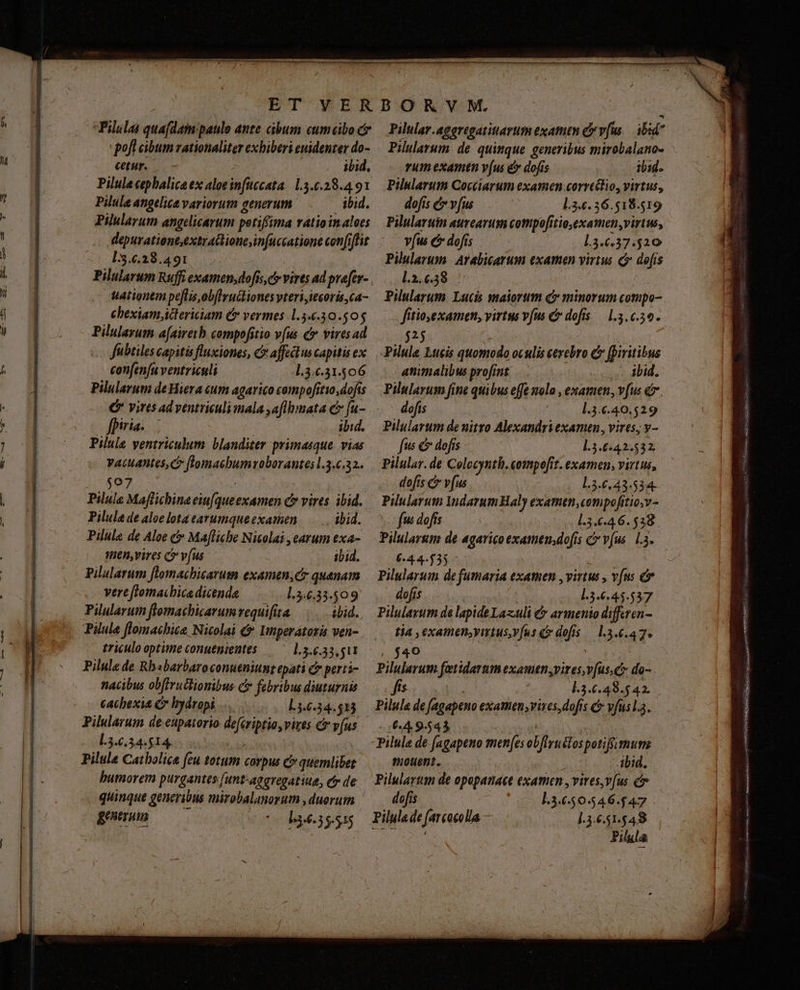 ET VERBORVM.
Pilulas quasdam paulo ante cibum cum cibo &
post cibum rationaliter exhiberi euidenter do-
cetur. ibid.
Pilula cephalica ex aloe insuccata l.3.c.28.491
Pilula angelica variorum generum ibid.
Pilularum angelicarum potissima ratio in aloes
depuratione,extractione,insuccatione consistit
l.3.c.28.491
Pilularum Ruffi examen,dosis,& vires ad praser-
uationem pestis,obstructiones vteri,iecoris,ca-
chexiam,ictericiam & vermes l.3.c.30.505
Pilularum asaireth compositio vsus & vires ad
subtiles capitis fluxiones, & affectus capitis ex
consensu ventriculi l.3.c.31.506
Pilularum de Hiera cum agarico compositio,dosis
& vires ad ventriculi mala ,asthmata & su-
spiria. ibid.
Pilule ventriculum blanditer primasque vias
vacuantes,& stomachum roborantes l.3.c.32.
507
Pilula Mastichina eiusque examen & vires ibid.
Pilula de aloe lota earumque examen ibid.
Pilula de Aloe & Mastiche Nicolai , earum exa-
men,vires & vsus ibid.
Pilularum stomachicarum examen,& quanam
vere stomachica dicenda l.3.c.33.509
Pilularum stomachicarum requisita ibid.
Pilula stomachica Nicolai & Imperatoris ven-
triculo optime conuenientes l.3.c.33.511
Pilula de Rhabarbaro conueniunt epati & perti-
nacibus obstructionibus & febribus diuturnis
cachexia & hydropi l.3.c.34.513
Pilularum de eupatorio descriptio,vires & vsus
l.3.c.34.514
Pilula Catholica seu totum corpus & quemlibet
humorem purgantes sunt-aggregatiua, & de
quinque generibus mirobalanorum , duorum
generum l.3.c.35.515
Pilular.aggregatiuarum examen & vsus ibid
Pilularum de quinque generibus mirobalano-
rum examen vsus & dosis ibid.
Pilularum Cocciarum examen correctio, virtus,
dosis & vsus l.3.c.36.518.519
Pilularum aurearum compositio,examen,virtus,
vsus & dosis l.3.c.37.520
Pilularum Arabicarum examen virtus & dosis
l.2.c.38
Pilularum Lucis maiorum & minorum compo-
sitio,examen, virtus vsus & dosis l.3.c.39.
525
Pilula Lucis quomodo oculis cerebro & spiritibus
animalibus prosint ibid.
Pilularum sine quibus esse nolo , examen, vsus &
dosis l.3.c.40.529
Pilularum de nitro Alexandri examen, vires, v-
sus & dosis l.3.c.42.532
Pilular. de Colocynth.composit. examen, virtus,
dosis & vsus l.3.c.43.534
Pilularum Indarum Haly examen,compositio,v-
sus dosis l.3.c.46.538
Pilularum de agarico examen,dosis & vsus l.3.
c.44.535
Pilularum de fumaria examen , virtus , vsus &
dosis l.3.c.45.537
Pilularum de lapide Lazuli & armenio differen-
tia , examen,virtus,vsus & dosis l.3.c.47.
540
Pilularum foetidarum examen,vires,vsus,& do-
sis l.3.c.48.542
Pilula de sagapeno examen,vires,dosis & vsus l.3.
c.49.543
Pilula de sagapeno menses obstructos potissimum
mouent. ibid.
Pilularum de opopanace examen , vires,vsus &
dosis l.3.c.50.546.547
Pilula de sarcocolla l.3.c.51.548
Pilula